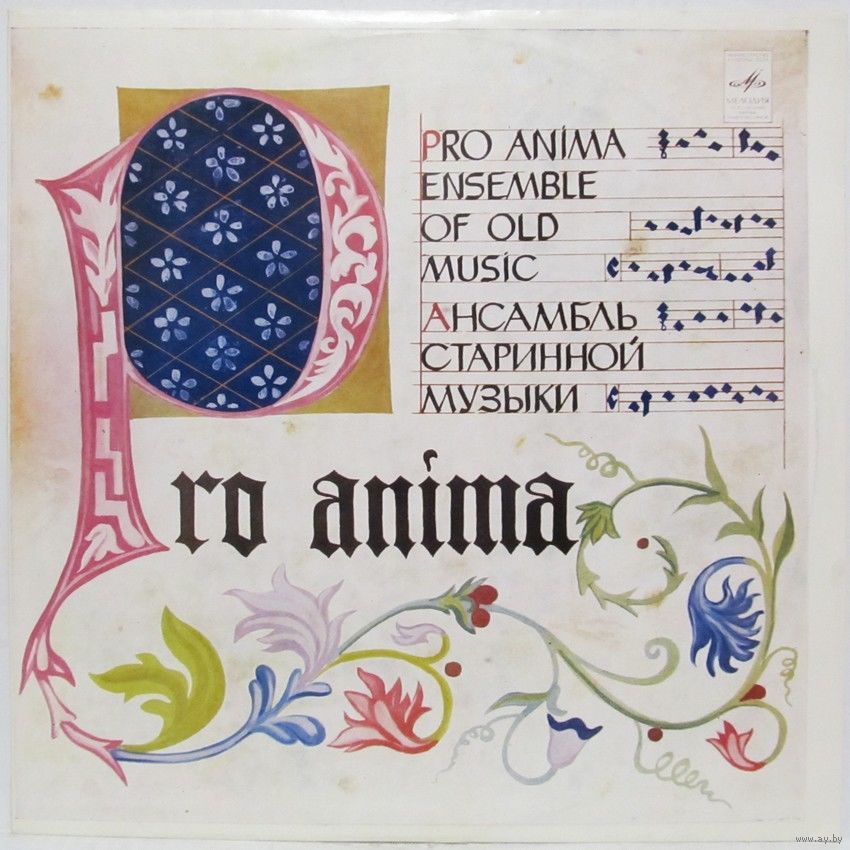 МЕЛОДИЯ
PRO ANIMA
ENSEMBLE
OF OLD
MUSIC
АНСАМБЛЬ
СТАРИННОЙ
МУЗЫКИ
Pro anima
www.ay.by